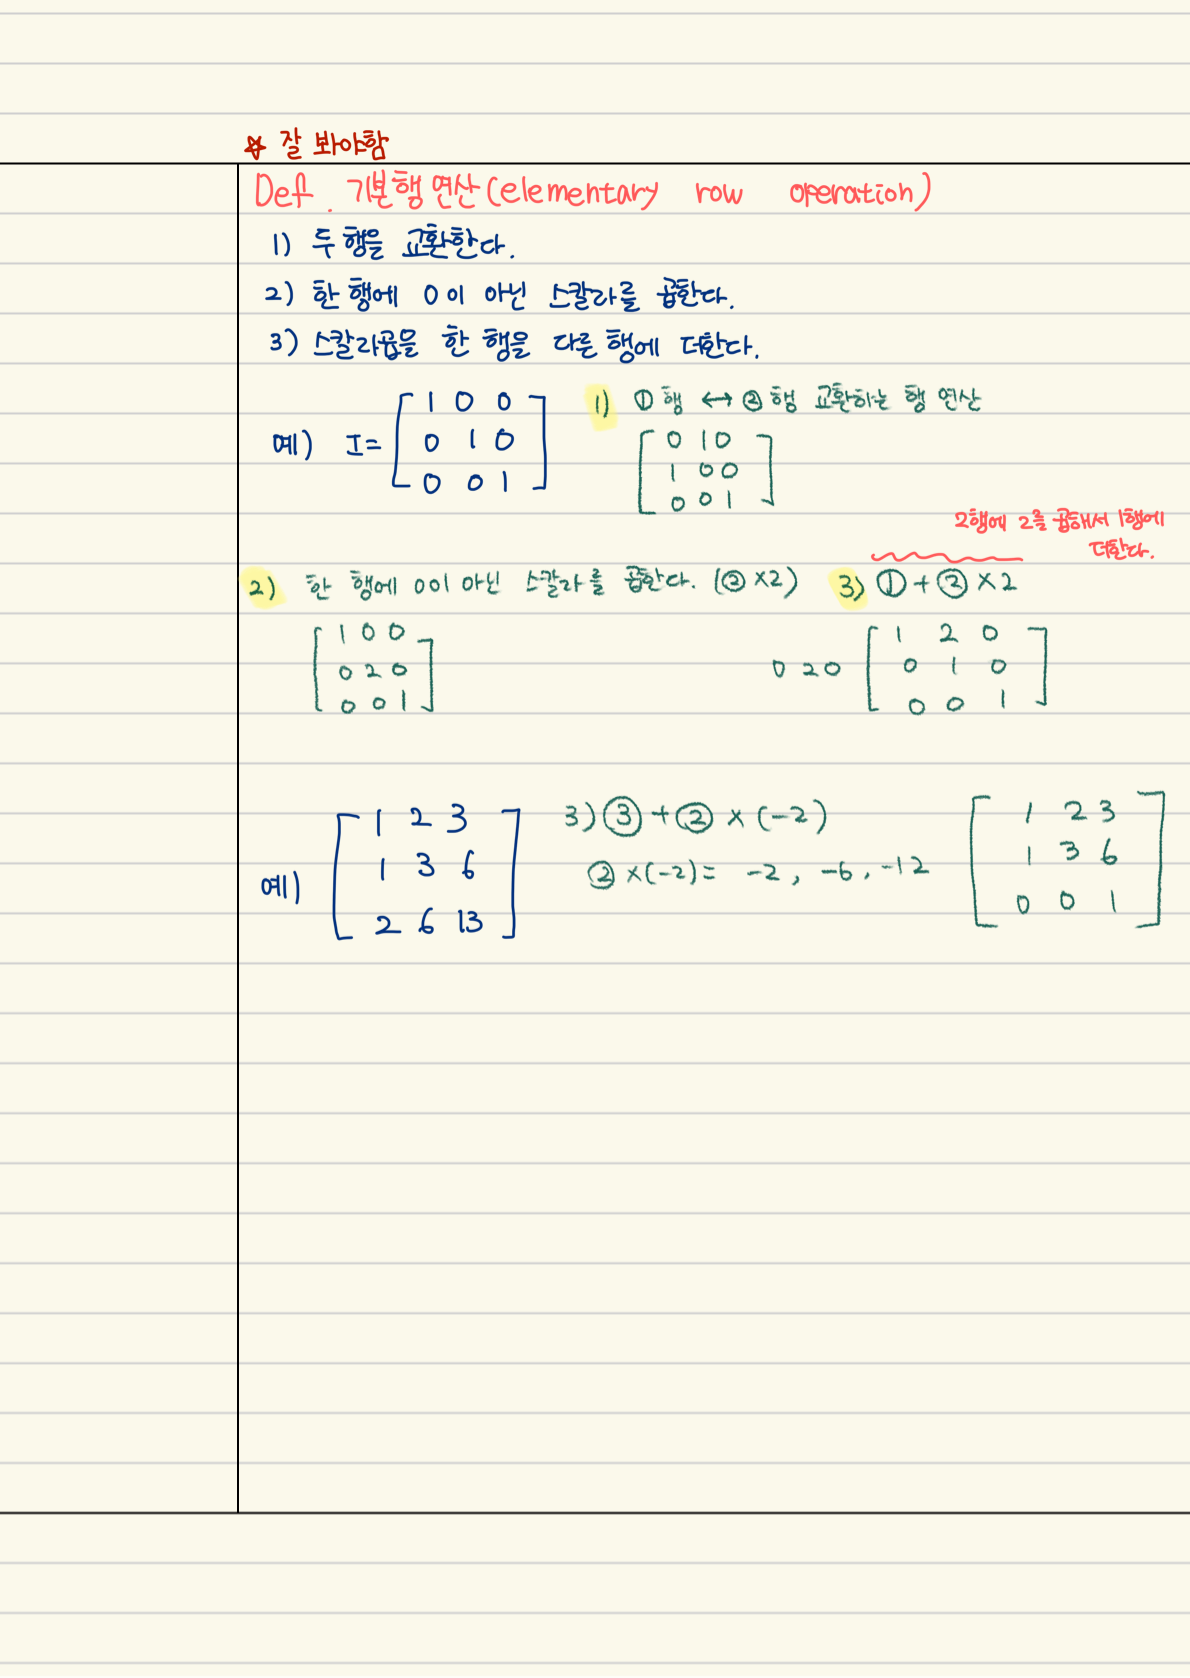 ☆ 잘 봐야함
Def. 기본행 연산(elementary row operation)
1) 두 행을 교환한다.
2) 한 행에 0이 아닌 스칼라를 곱한다.
3) 스칼라곱을 한 행을 다른 행에 더한다.
예) I=
1 0 0
0 1 0
0 0 1
1) ①행 ↔ ②행 교환하는 행 연산
0 1 0
1 0 0
0 0 1
2행에 2를 곱해서 1행에
더한다.
2) 한 행에 0이 아닌 스칼라를 곱한다. (②×2)
1 0 0
0 2 0
0 0 1
3) ①+②×2
0 2 0
1 2 0
0 1 0
0 0 1
예)
1 2 3
1 3 6
2 6 13
3) ③+②×(-2)
②×(-2)= -2, -6, -12
1 2 3
1 3 6
0 0 1